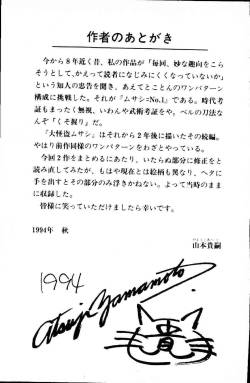 作者のあとがき
今から8年近く昔、私の作品が「毎回、妙な趣向をこら
そうとして、かえって読者になじみにくくなっていないか」
という知人の忠告を聞き、あえてとことんのワンパターン
構成に挑戦した。それが『ムサシ=No.1』である。時代考
証もまったく無視、いわんや武術考証をや。ベルの刀法な
んぞ「くそ握り」だ。
『大怪盗ムサシ』はそれから2年後に描いたその続編。
やはり前作同様のワンパターンをわざとやっている。
今回2作をまとめるにあたり、いたらぬ部分に修正をと
読み直してみたが、もはや現在とは絵柄も異なり、ヘタに
手を出すとその部分のみ浮きかねない。よって当時のまま
に収録した。
皆様に笑っていただけましたら幸いです。
1994年 秋
山本貴嗣
1994
Atsuji Yamamoto
貴